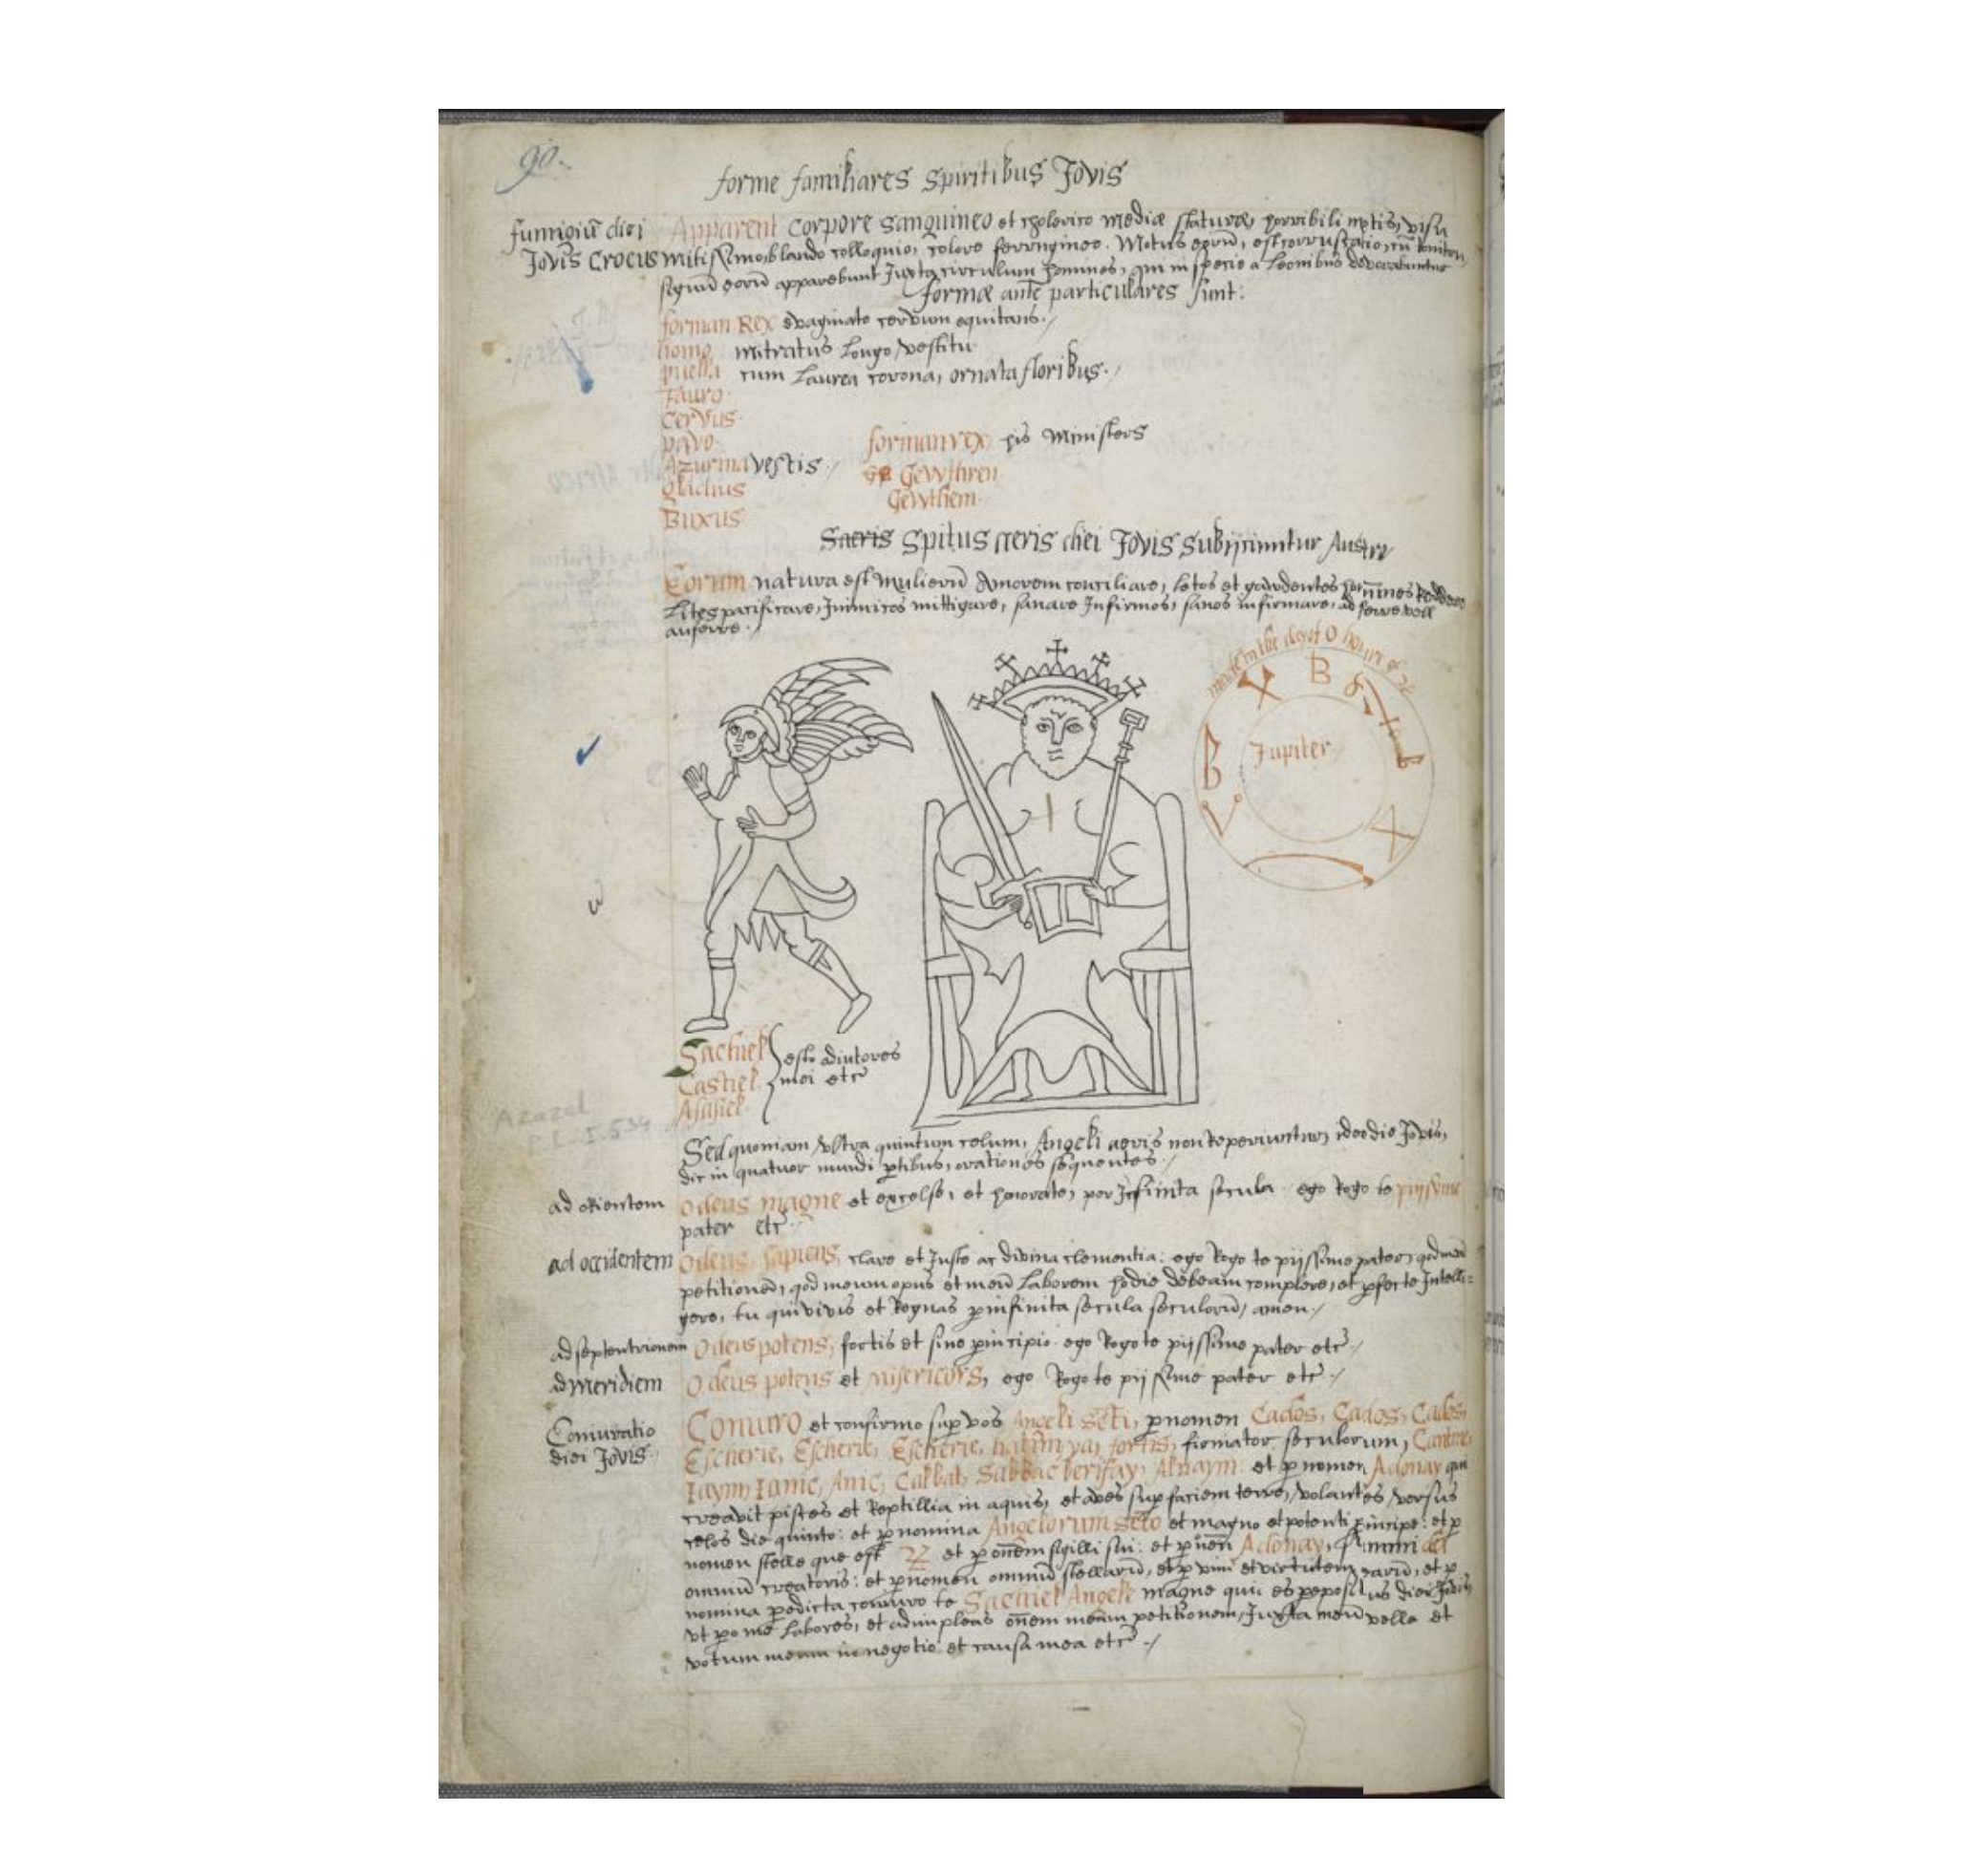 90.
forme familiares spiritibus Jovis
fumigiū diei
Jovis Crocus
Apparent corpore sanguineo et cholerico mediæ staturæ, horribili motis, visu
mitissimo, blando colloquio, colore ferrugineo. Motus eorū, est corruscatio, cū tonitru,
signū eorū apparebunt Juxta circulum homines, qui in specie a Leonibus devorabuntur
formæ autē particulares sunt:
forman Rex evaginato cervum equitans./
homo mitratus Longo vestitu
puella cum Laurea corona, ornata floribus./
Tauro.
Cervus.
pavo.
Azurina vestis./
gladius
Buxus.
forman rex his Ministers
Gewthren
Gewthem.
Saeris spitus aeris diei Jovis subijciuntur Austri
Eorum natura est Mulierū Amorem conciliare, letos et gaudentes homines Reddere
Lites pacificare, Inimicos mittigare, sanare Infirmos, sanos infirmare, ad ferre vell
auferre./
made in the day of O houre of ♃
B
B
Jupiter
Sachiel
Castiel.
Asasiel.
esto adiutores
mei etc
Azazel
P.L. I. 534
Sed quoniam Ultra quintum celum, Angeli aeris non Reperiuntur, ideo die Jovis,
dic in quatuor mundi ptibus, orationes sequentes./
ad orientem
O deus magne et excelse, et honorate, per Infinita secula. ego Rogo te piissime
pater etc.
ad occidentem
O deus sapiens, clare et Juste ac divina clementia: ego Rogo te piissime pater, qod meā
petitionem, qod meum opus et meū Laborem hodie debeam complere, et pfecte Intelli=
gere, tu qui vivis et Regnas p infinita secula seculorū, amen./
ad septentrionem
O deus potens, fortis et sine principio. ego Rogo te piissime pater etc./
ad Meridiem
O deus potens et misericors, ego Rogo te piissime pater etc./
Coniuratio
diei Jovis.
Coniuro et confirmo sup vos Angeli scti, p nomen Cados, Cados, Cados,
Escherie, Escherie, Escherie, hatim ya, fortis, firmator seculorum, Cantine,
Iaym, Ianic, Anic, Calbat, Sabbac berifay, Alnaym: et p nomen Adonay qui
creavit pisces et Reptillia in aquis, et aves sup faciem terre, volantes versus
celos die quinto: et p nomina Angelorum scto et magno et potenti principe: et p
nomen stelle que est ♃ et p onem sigilli sui: et p noen Adonay, summi dei
omniū creatoris: et p nomen omniū stellarū, et p vim et virtutem earū, et p
nomina predicta coniuro te Sachiel Angele magne qui es prepositus diei Jovis,
ut pro me Labores, et adimpleas onem meam petitionem, Juxta meū velle et
votum meum in negotio et causa mea etc./